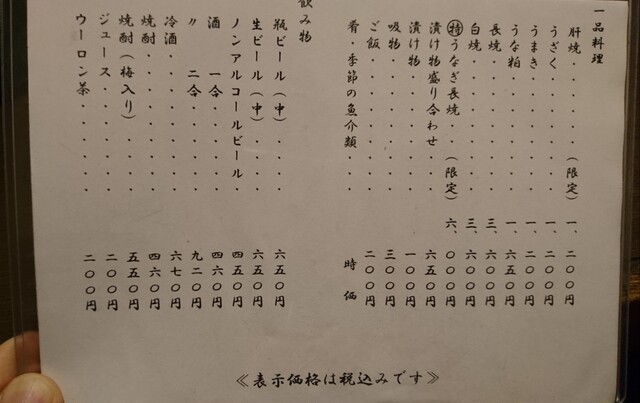 一品料理
肝焼・・・・・(限定) 一、二〇〇円
うざく・・・・・・・ 一、二〇〇円
うまき・・・・・・・ 一、二〇〇円
うな粕・・・・・・・ 一、六五〇円
長焼・・・・・・・・ 三、六〇〇円
白焼・・・・・・・・ 三、六〇〇円
㊕うなぎ長焼・(限定) 六、〇〇〇円
漬け物盛り合わせ・・ 六五〇円
漬け物・・・・・・・ 一〇〇円
吸物・・・・・・・・ 三〇〇円
ご飯・・・・・・・・ 二〇〇円
肴・季節の魚介類・・ 時価
飲み物
瓶ビール(中)・・・ 六五〇円
生ビール(中)・・・ 六五〇円
ノンアルコールビール 四五〇円
酒 一合・・・・・ 四六〇円
〃 二合・・・・・ 九二〇円
冷酒・・・・・・・・ 六七〇円
焼酎・・・・・・・・ 四六〇円
焼酎(梅入り)・・・ 五五〇円
ジュース・・・・・・ 二〇〇円
ウーロン茶・・・・・ 二〇〇円
≪表示価格は税込みです≫